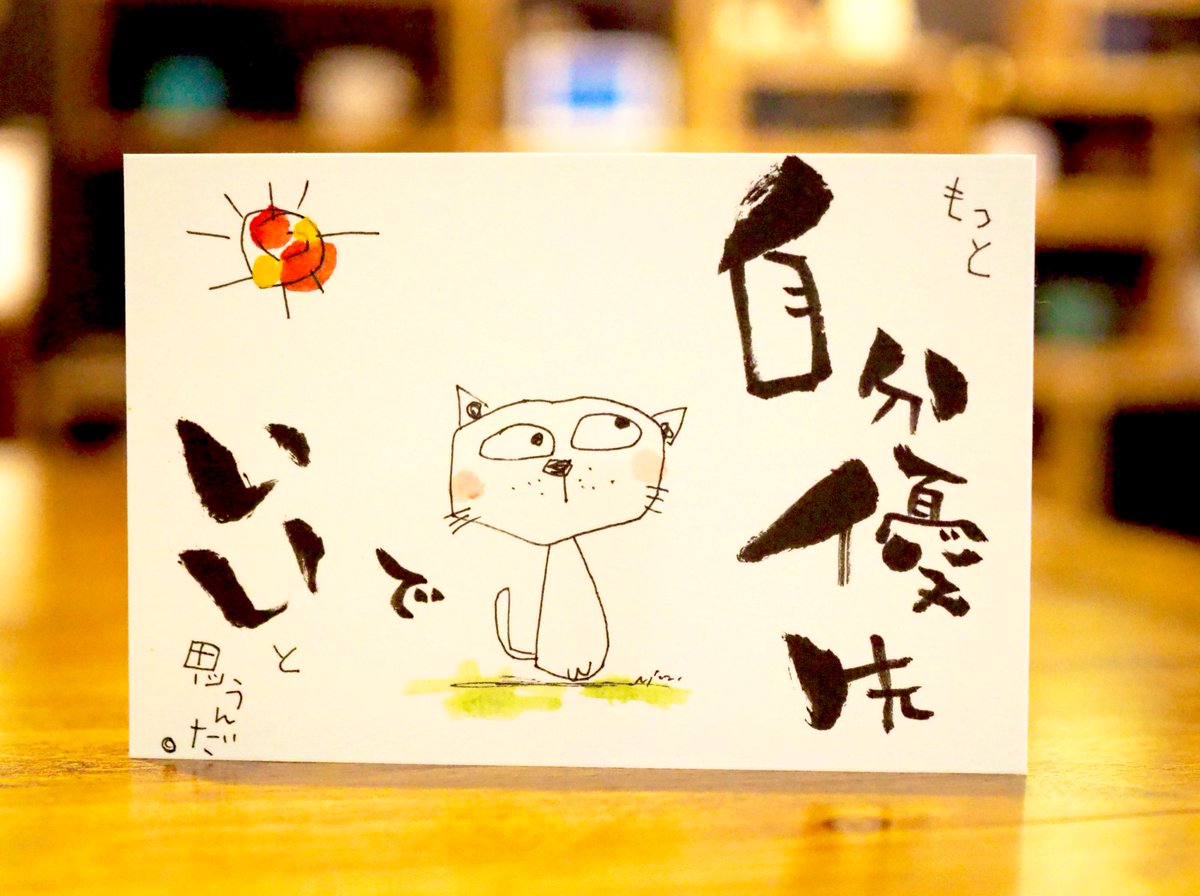 もっと
自分優先
で
いい
と
思うんだ。